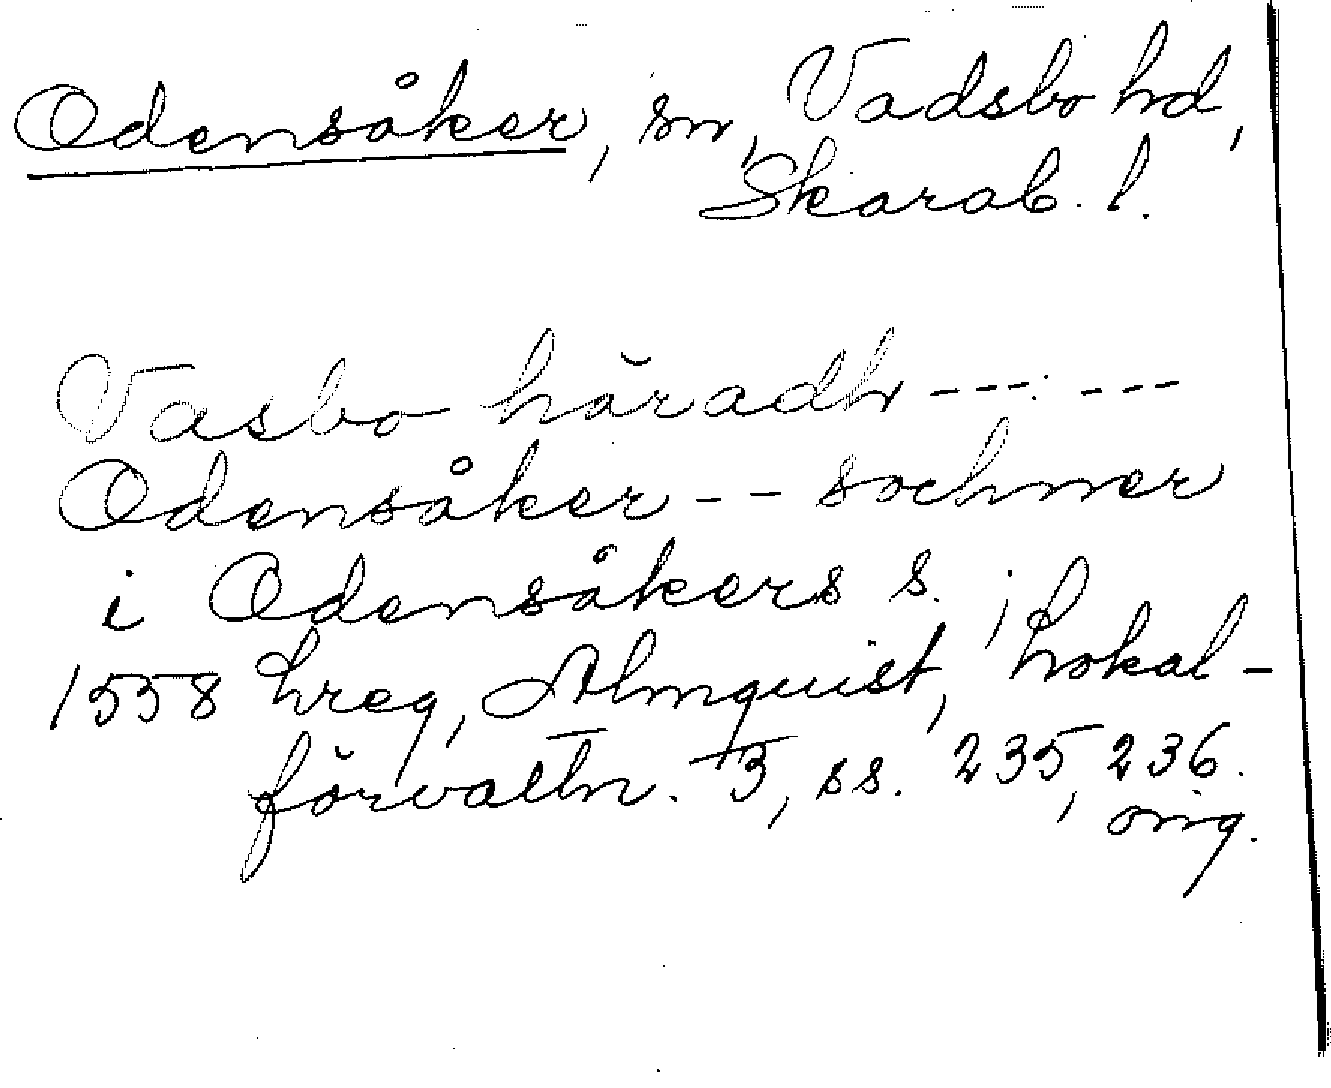 Odensåker, sn, Vadsbo hd,
Skarab. l.
Vasbo häradh --- ---
Odensåker -- sochner
i Odensåkers s.
1558 hreg, Almquist, Lokal-
förvaltn. 3, ss. 235, 236.
orig.